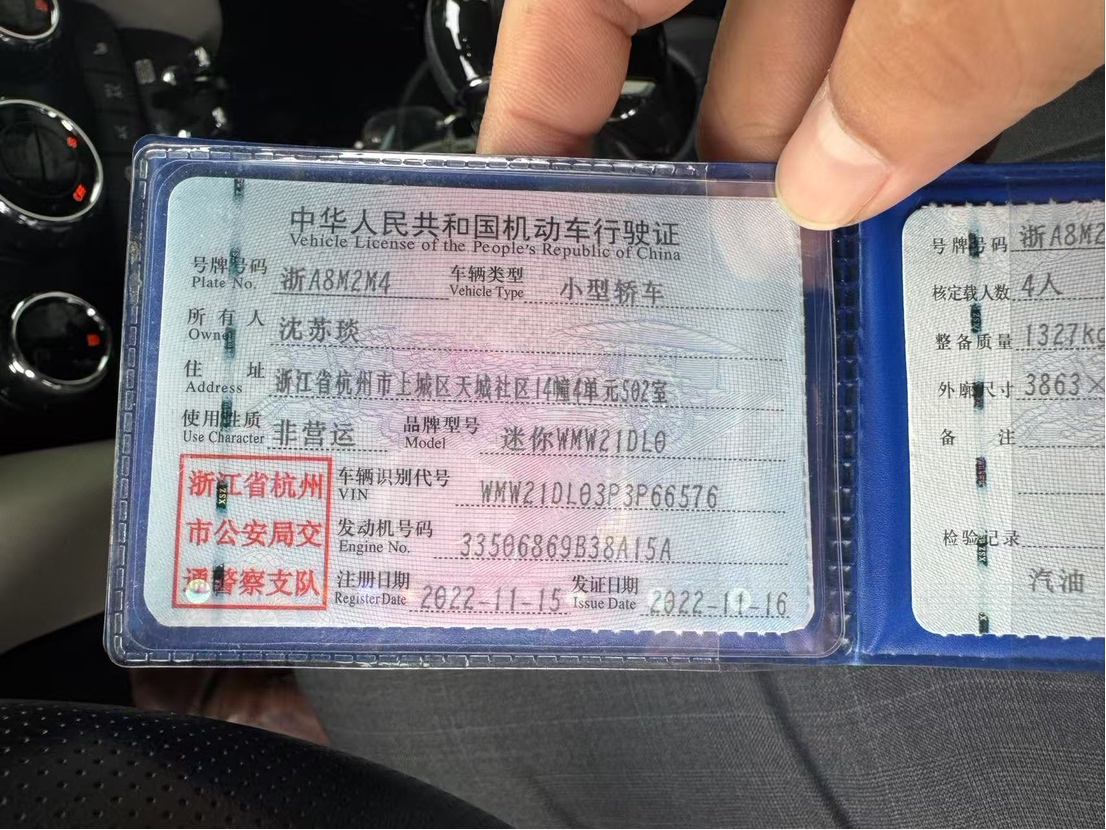 中华人民共和国机动车行驶证
Vehicle License of the People's Republic of China
号牌号码 浙A8M2M4 车辆类型 小型轿车
Plate No. Vehicle Type
所有人 沈苏琰
Owner
住址 浙江省杭州市上城区天城社区14幢4单元502室
Address
使用性质 非营运 品牌型号 迷你WMW21DL0
Use Character Model
浙江省杭州
市公安局交
通警察支队
车辆识别代号 WMW21DL03P3P66576
VIN
发动机号码 33506869B38A15A
Engine No.
注册日期 2022-11-15 发证日期 2022-11-16
Register Date Issue Date
号牌号码 浙A8M2
核定载人数 4人
整备质量 1327kg
外廓尺寸 3863×
备注
检验记录
汽油